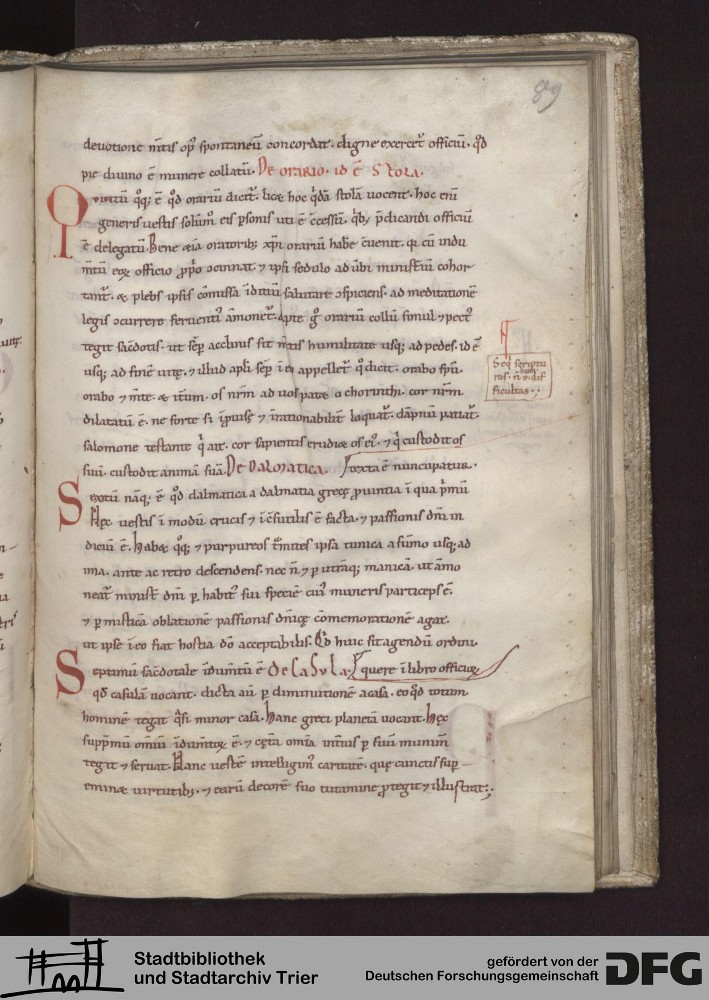 89
deuotione m̅tis op̅ spontaneū concordat. digne exercet᷑ officiū. qd̅
pie diuino ē munere collatū. De orario. id ē Stola.
Quintū qq; ē qd̅ orariū dicit᷑. licæ hoc qida̅ stolā uocent. hoc eni̅
generis uestis solūm̊ eis p̱sonis uti ē c̅cessū. qib; p̅dicandi officiū
ē delegatū. Bene æia̅ oratorib; xp̅i orariū habe̅ c̅uenit. qi cū indu
m̅tū eoꝝ officio p̱p̊o ↄcinnat. ⁊ ipsi sedulo ad u̅bi minist̅iū cohor
tant᷑. æ plebs ipsis cōmissa ī̅ditiū salutare ↄspiciens. ad meditationē
legis ↄcurrere feruenti᷑ āmonet᷑. Apte g̊ orariū collū simul ⁊ pect᷒
tegit sac̅dotis. ut se̅p̱ acclinis sit m̅tis humilitate usq; ad pedes. id ē
usq; ad finē uitę. ⁊ illud apl̅i se̅p̱ ī eo appellet᷑ q̊ dicit. orabo sp̅u.
orabo ⁊ m̅te. æ it̅um. os nr̅m ad uos patæ o chorinthi. cor nr̅m
dilatatū ē. ne forte si īp̱uisę ⁊ īrationabilit̅ loquat᷑. dāpnū patiat᷑.
salomone testante qi ait. cor sapientis erudiæ os ei᷒. ⁊ qi custodit os
suū. custodit animā suā. De Dalmatica. Iuxta ē nuncupatur.
Sextū nāq; ē qd̅ dalmatica a dalmatia grecę p̱uintia ī qua pimū
Hęc uestis ī modū crucis ⁊ īc̅sutilis ē facta. ⁊ passionis dn̅i in
diciū ē. Habæ qq; ⁊ purpureos t̅mites ipsa tunica a sūmo usq; ad
ima. ante ac retro descendens. nec n̅ ⁊ p̱ utrāq; manicā. ut āmo
neat᷑ minist̅ dn̅i p̱ habit᷒ sui speciē cui᷒ muneris particeps ē.
⁊ p̱ misticā oblationē passionis dn̅icę cōmemorationē agat.
ut ipse ī eo fiat hostia do̅ acceptabilis. Eb huic sit agendū ordini
Septimū sac̅dotale īdum̅tū ē De Casula. quere ī libro officioꝝ
qd̅ casulā uocant. dicta aū p̱ diminutionē a casa. eo qd̅ totum
hominē tegit qasi minor casa. Hanc greci planetā uocant. Hęc
supp̅mū omniū īdum̅toꝝ ē. ⁊ cęt̅a om̅ia int̅ius p̱ suū munim̅
tegit ⁊ seruat. Hanc uestē intelligim᷒ caritatē. quę cunctis sup̱
eminæ uirtutib;. ⁊ earū decorē suo tutamine p̱tegit ⁊ illustrat;.
Seq̅ scriptu
ras. n̅ e. dif
ficultas.
Stadtbibliothek
und Stadtarchiv Trier
gefördert von der
Deutschen Forschungsgemeinschaft
DFG